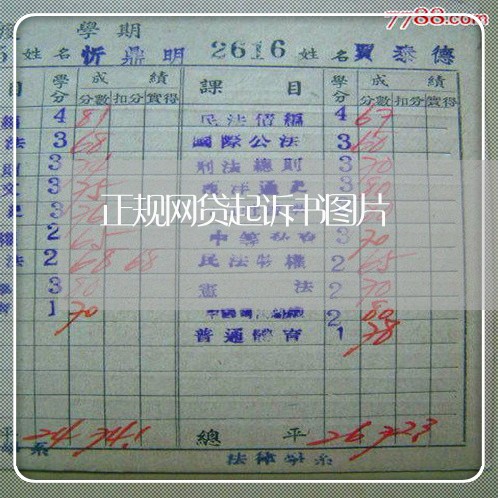 7788.com
學期
姓名 忻鼎明 2616 姓名 賈泰德
目 學分 成績 課目 學分 成績
分數 扣分 實得 分數 扣分 實得
4 81 民法債編 4 67
法 3 68 國際公法 3 60
3 刑法總則 3 70
3 75 西洋通史 3 80
正规网贷起诉书图片
2 65 3 70
法 2 68 68 民法物權 2 65
3 80 憲法 2 70
1 70 2 80
普通體育 1 78
平 24 74.1 總平 26 72.3
系 法律學系